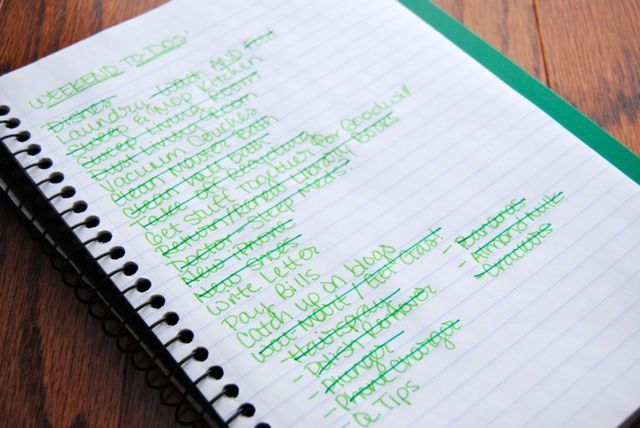 WEEKEND TO-DO's
Dishes
Laundry - Wash AND Fold
Sweep & Mop Kitchen
Sweep Living Room
Dust Living Room
Vacuum Couches
Clean Master Bath
Clean Hall Bath
Take off Recycling
Get stuff together for Goodwill
Return/Renew Library Books
Doctor - Sleep Meds!!
New iPhone
New Shoes
Write Letter
Pay Bills
Catch up on blogs
Wal Mart / Get Gas!
- Hairspray
- Polish Remover
- Plunger
- Phone Charger
- Q Tips
- Bananas
- Almond Milk
- Crackers